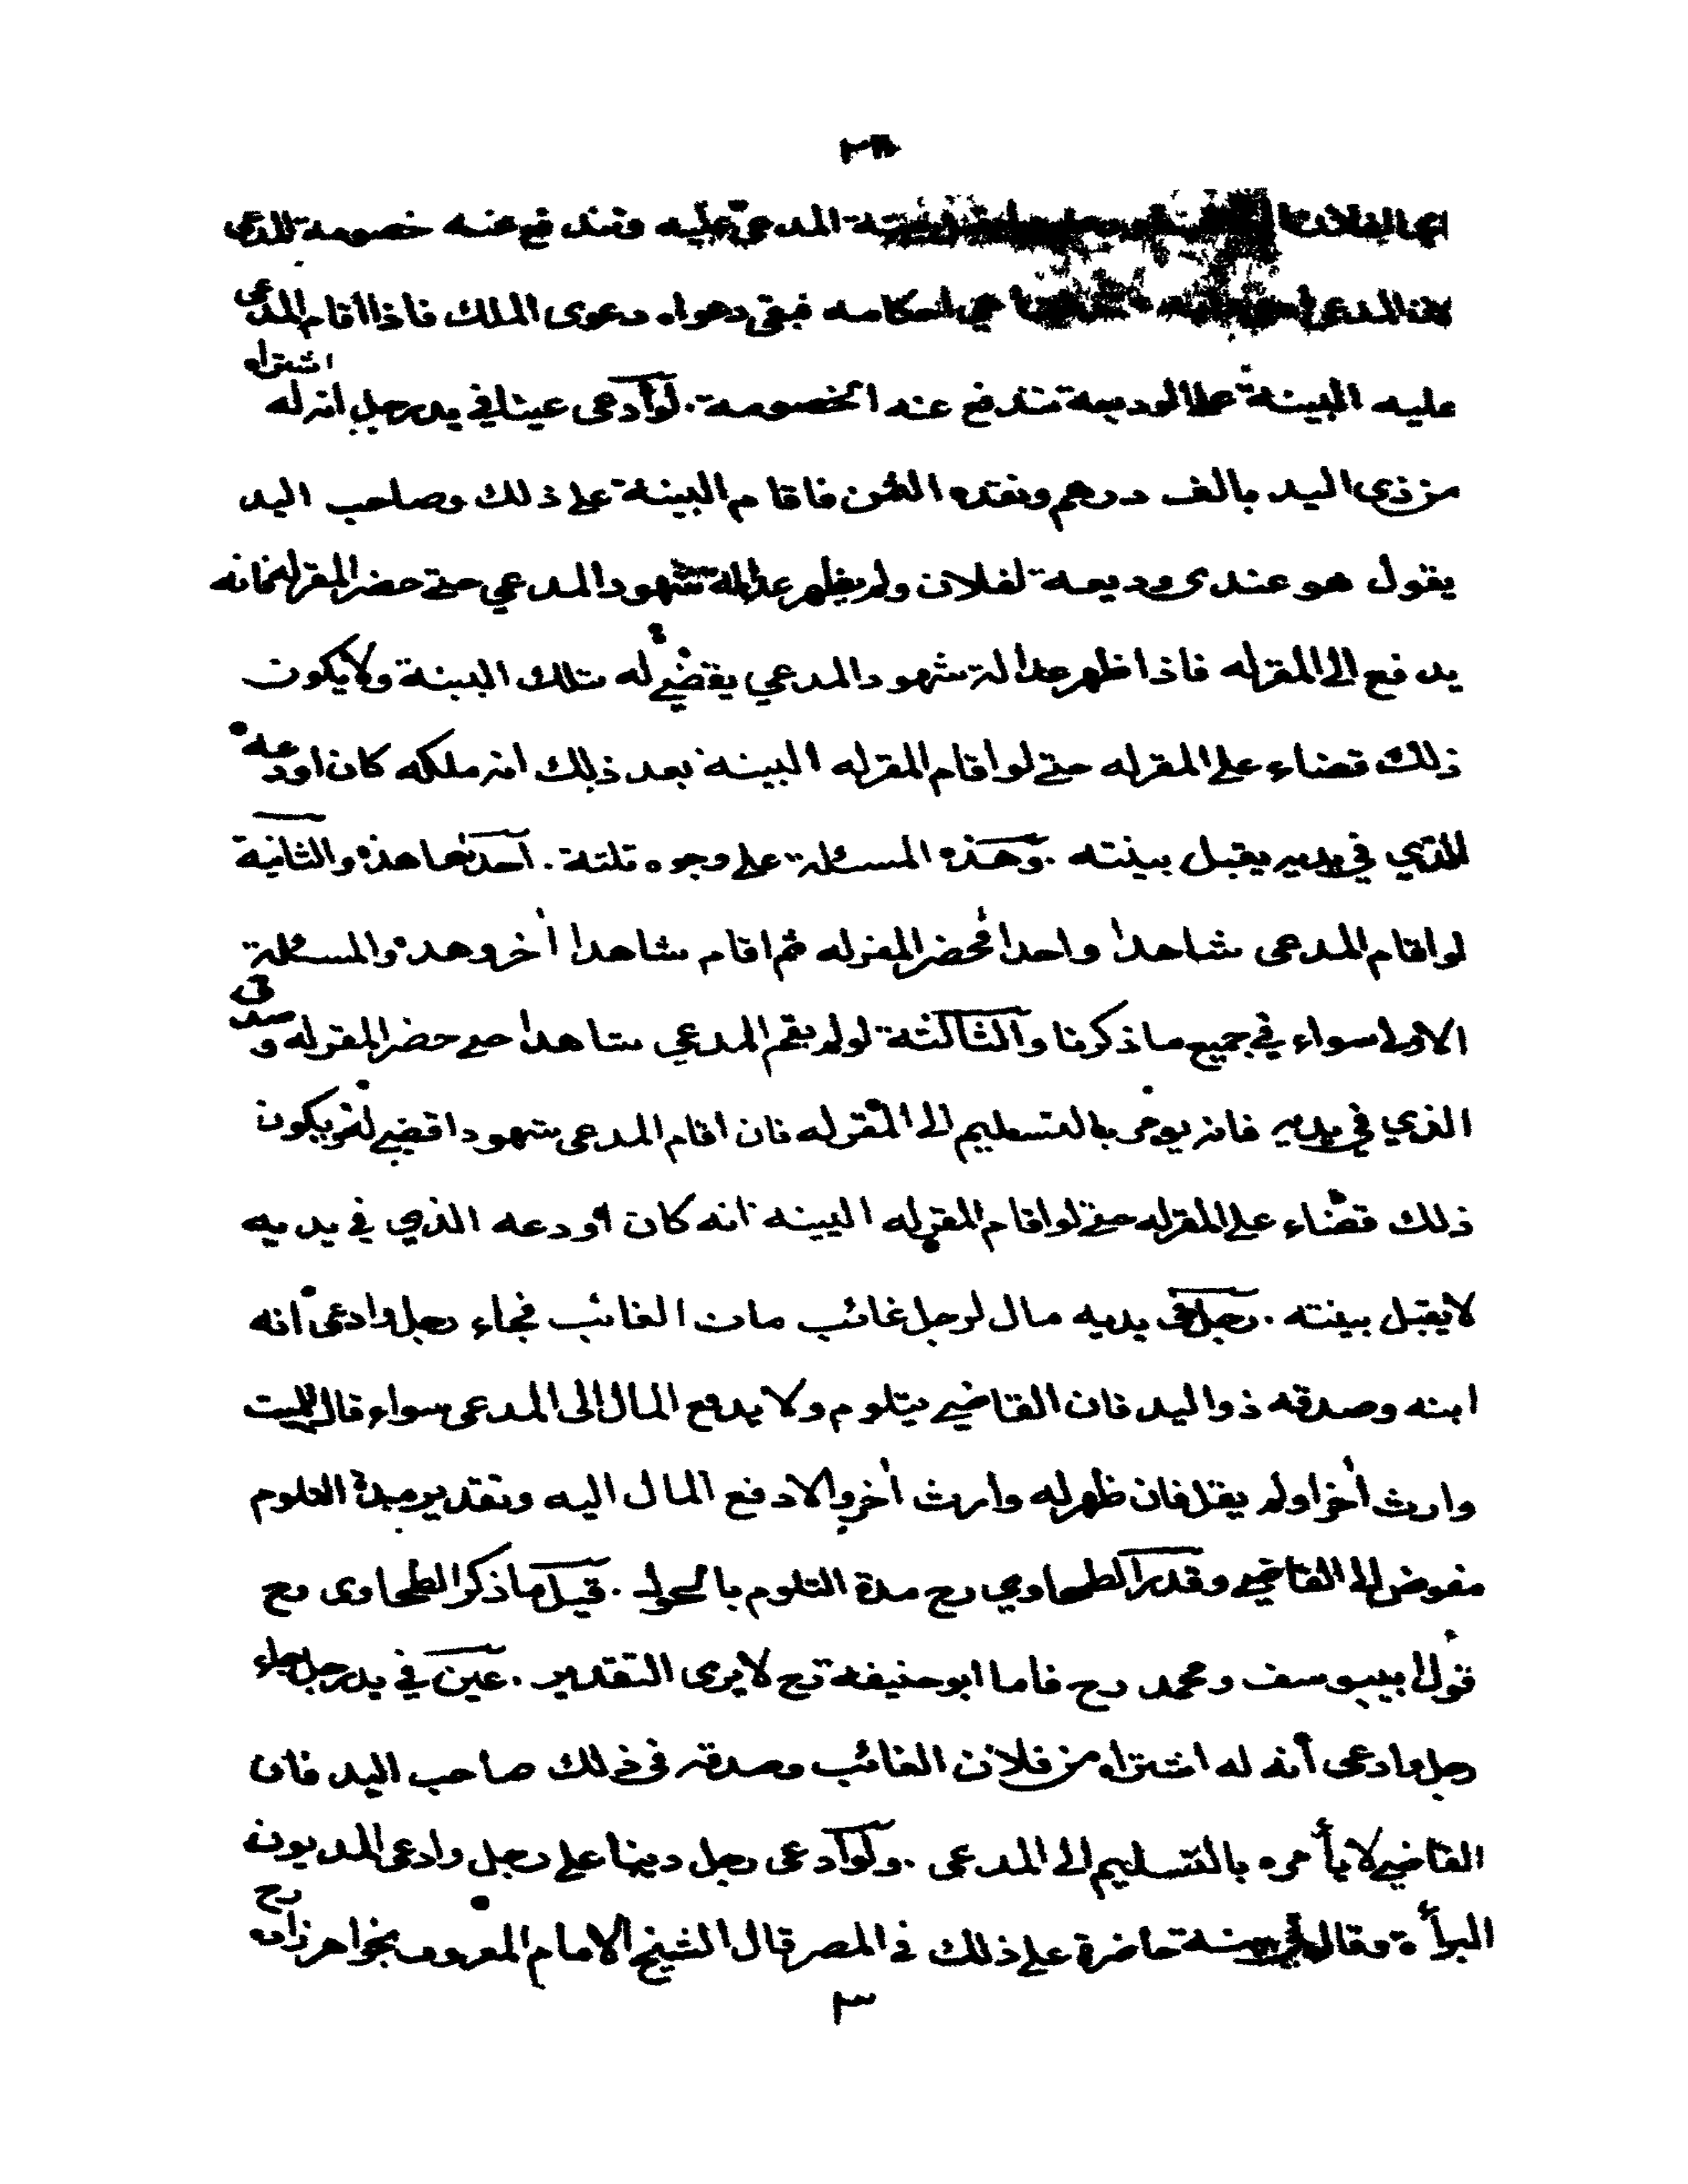 انها لفلان بينة المدعى عليه وتند فع عنه خصومة المدعى
لان المدعى فبقي دعواه دعوى الملك فاذا اقام المدعى
عليه البينة على الوديعة تندفع عنه الخصومة . لو ادعى عينا في يد رجل انه له اشتراه
من ذى اليد بالف درهم ونقده الثمن فاقام البينة على ذلك وصاحب اليد
يقول هو عندى وديعة لفلان ولم يظهر عدالة شهود المدعي حتى حضر المقرله فانه
يد فع الى المقرله فاذا ظهر عدالة شهود المدعي يقضي له بتلك البينة ولا يكون
ذلك قضاء على المقرله حتى لو اقام المقرله البينة بعد ذلك انه ملكه كان اودعه
للذي في يديه يقبل بينته . وهذه المسئلة على وجوه ثلثة . احدىها هذه والثانية
لو اقام المدعى شاهدا واحدا فحضر المقرله ثم اقام شاهدا أخر وهذه والمسئلة
الاولى سواء في جميع ما ذكرنا والثالثة لو لم يقم المدعي شاهدا حتى حضر المقرله وصدقه
الذي في يديه فانه يومر بالتسليم الى المقرله فان اقام المدعى شهودا قضي له ويكون
ذلك قضاء على المقرله حتى لو اقام المقرله البينة انه كان أودعه الذي في يديه
لا يقبل بينته . رجل في يديه مال لرجل غائب مات الغائب فجاء رجل وادعى أنه
ابنه وصدقه ذو اليد فان القاضي يتلوم ولا يدفع المال الى المدعى سواء قال للميت
وارث أخر او لم يقل فان ظهر له وارث أخر والا دفع المال اليه وتقدير مدة التلوم
مفوض الى القاضي وقدر الطحاوي رح مدة التلوم بالحول . قيل ما ذكر الطحاوى رح
قول ابييوسف ومحمد رح فاما ابو حنيفة رح لا يرى التقدير . عين في يد رجل جاء
رجل وادعى أنه له اشتراه من فلان الغائب وصدقه في ذلك صاحب اليد فان
القاضي لا يأ مره بالتسليم الى المدعى . ولو ادعى رجل دينا على رجل وادعى المديون
البرأة وقال لي بينة حاضرة على ذلك في المصر قال الشيخ الامام المعروف بخواهر زاده رح